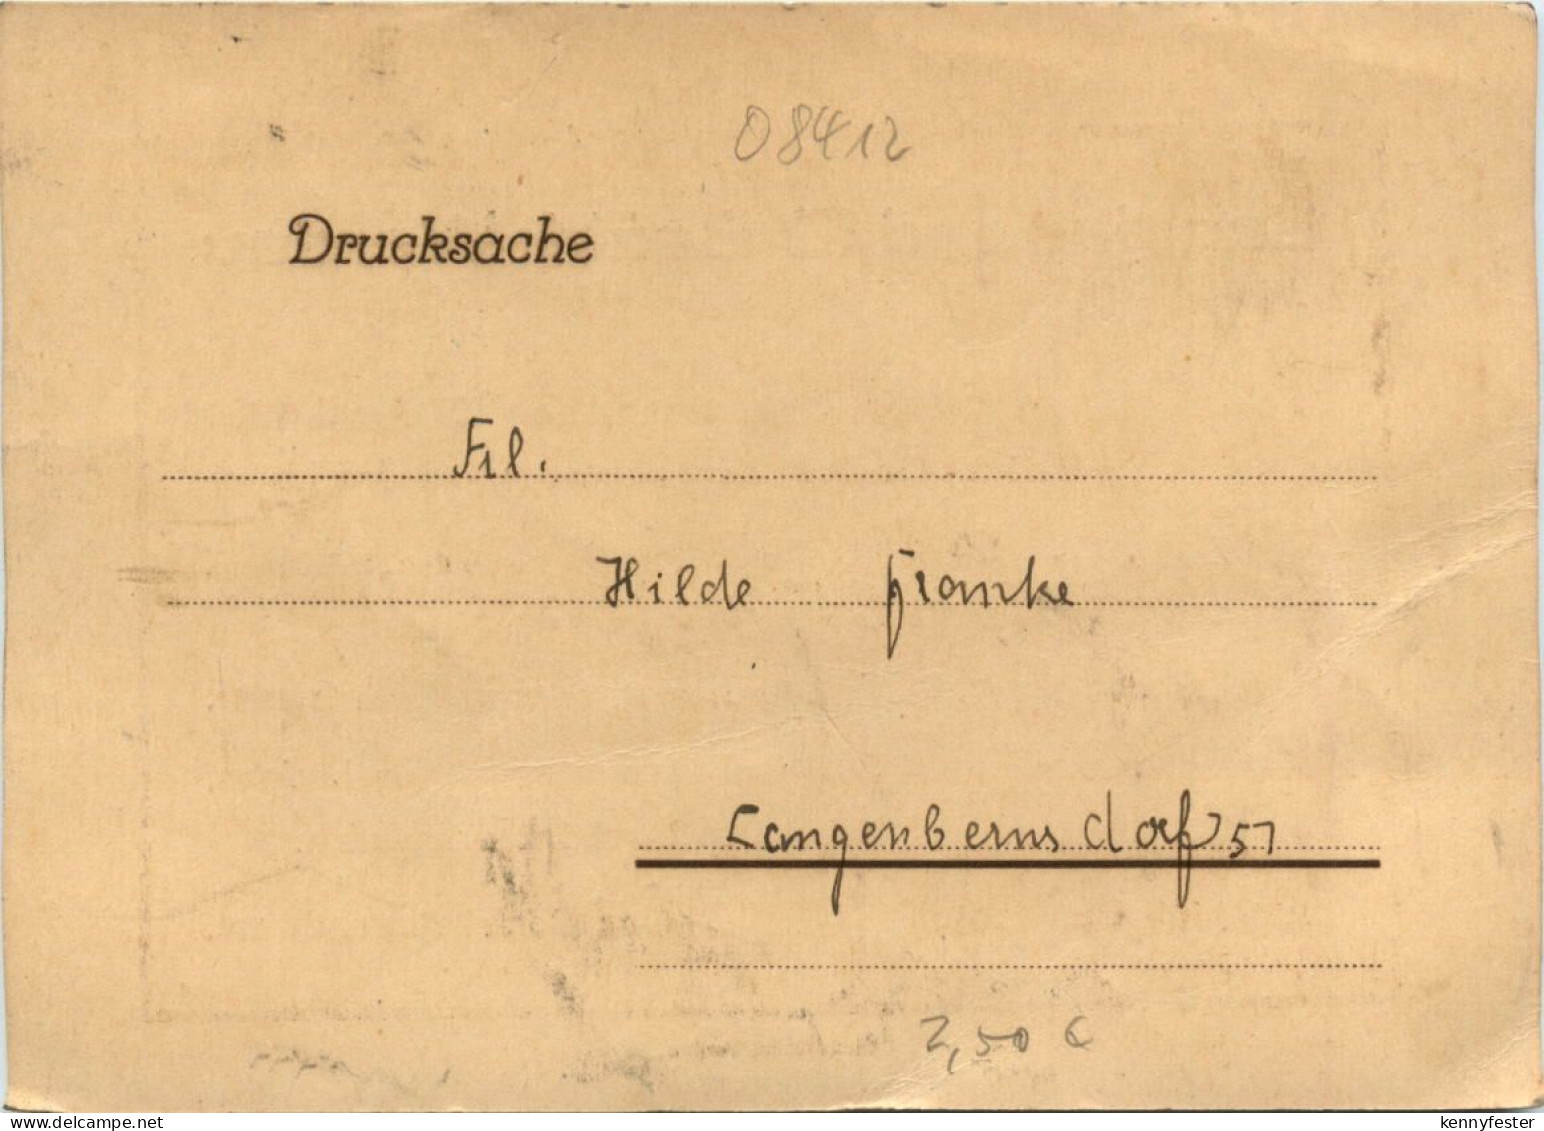 08412
Drucksache
Frl.
Hilde Franke
Langenbernsdorf 57
2,50 €
www.delcampe.net
kennyfester